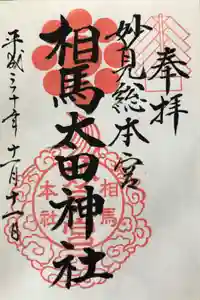 奉拝
妙見総本宮
相馬太田神社
平成三十年十一月十一日
相馬
本社